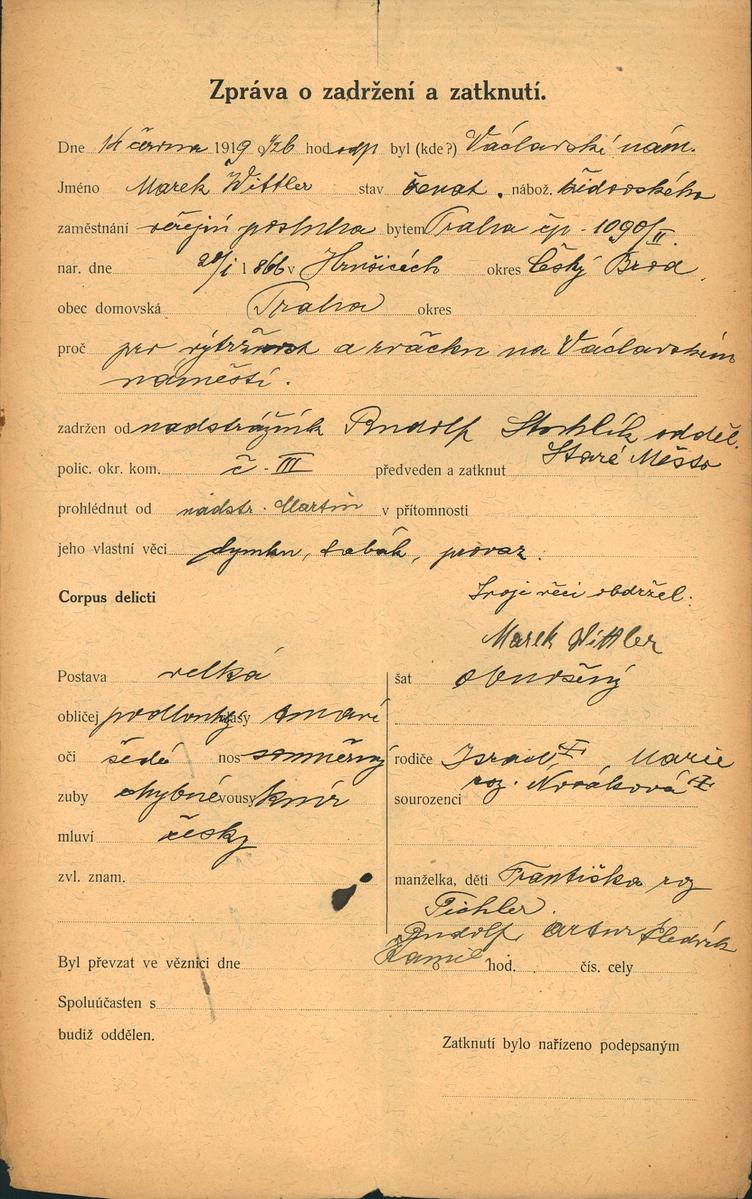 Zpráva o zadržení a zatknutí.
Dne 14 června 1919 o 1/26 hod odp byl (kde?) Václavské nám.
Jméno Marek Wittler stav ženat. nábož. židovského
zaměstnání veřejný posluha bytem Praha čp. 1090/II.
nar. dne 20/I 1866 v Hrusicích okres Český Brod.
obec domovská Praha okres
proč pro výtržnost a rvačku na Václavském
náměstí.
zadržen od nadstrážník Rudolf odděl.
polic. okr. kom. č. III předveden a zatknut Staré Město
prohlédnut od nadstr. Martin v přítomnosti
jeho vlastní věci dymku, tabák, provaz.
Corpus delicti Svoje věci obdržel.
Marek Wittler
Postava velká šat obnošený
obličej podlouhlý vlasy tmavé
oči šedé nos souměrný rodiče Israel, Marie
roz. Nováková
zuby chybné vousy knír sourozenci
mluví česky
zvl. znam. manželka, děti Františka roz
Pichler.
Rudolf Artur Bedřich
Kamil
Byl převzat ve věznici dne o hod. čís. cely
Spoluúčasten s
budiž oddělen.
Zatknutí bylo nařízeno podepsaným